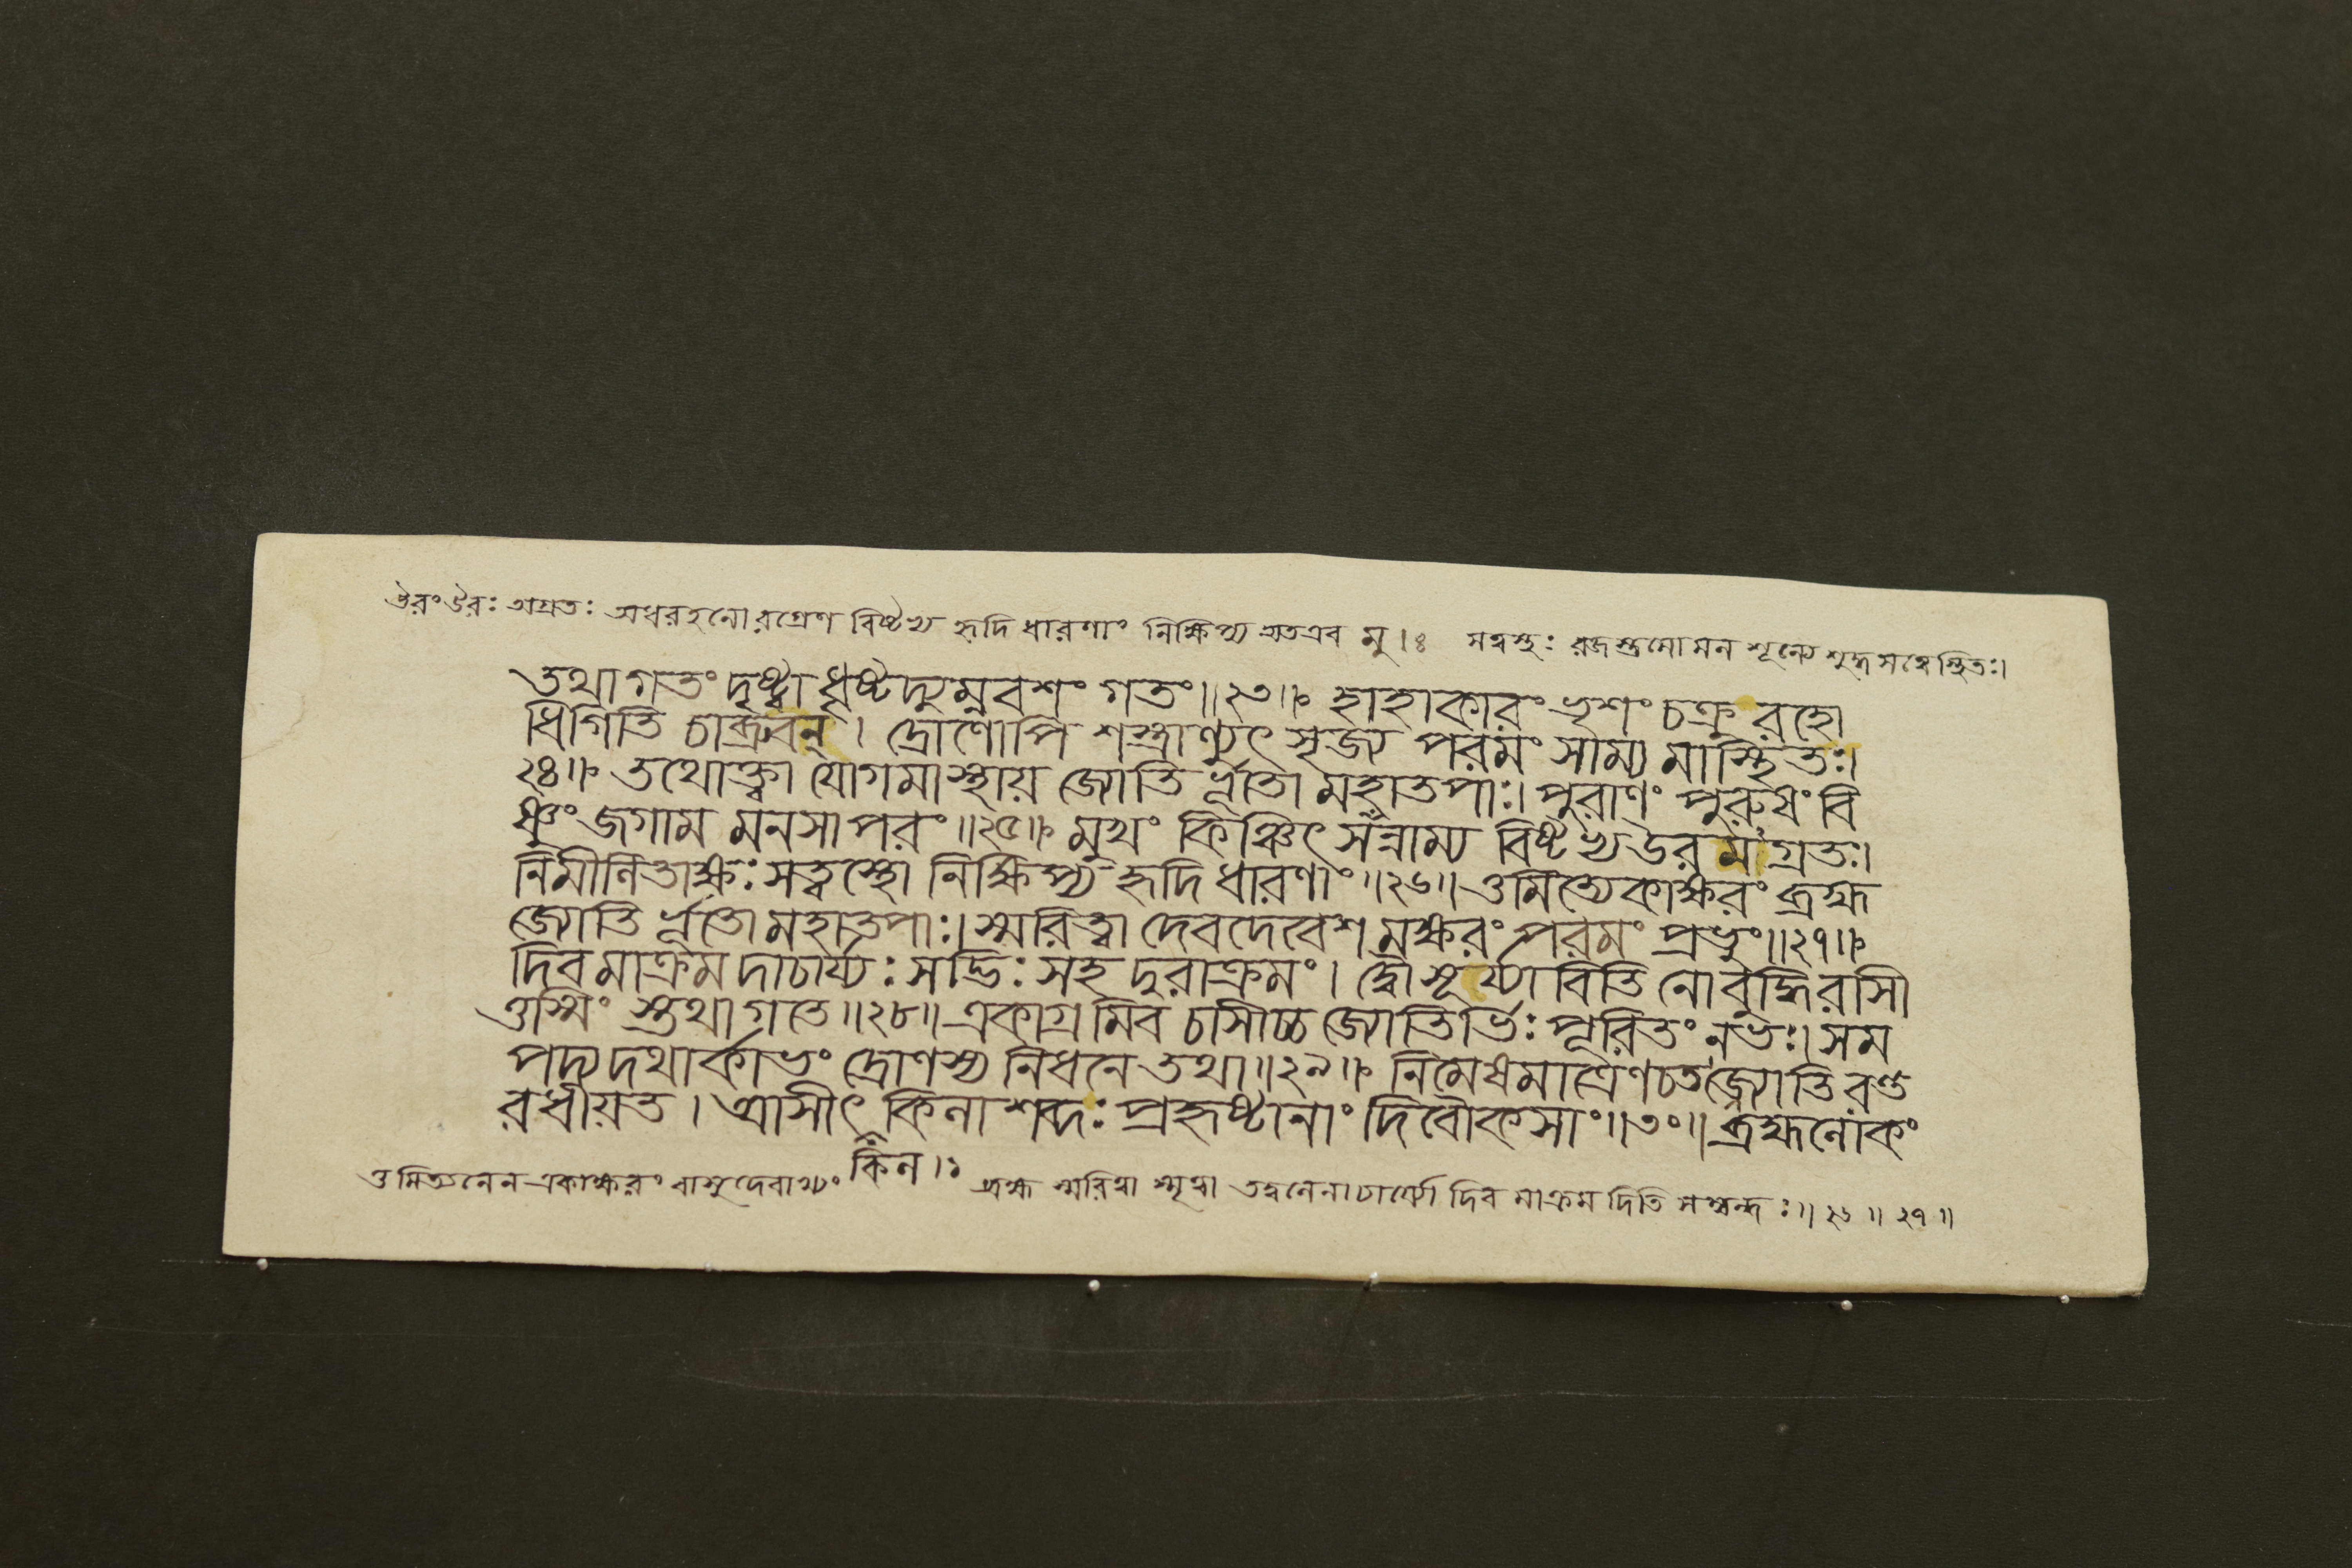 উরং উরঃ অগ্রতঃ অধরহনোরগ্রেণ বিষ্টভ্য হৃদি ধারণাং নিক্ষিপ্য অতএব মু।ঃ সত্বস্থঃ রজস্তমোমন শূন্যে শুদ্ধসত্বেস্থিতঃ।
তথাগতং দৃষ্ট্বা ধৃষ্টদ্যুম্নবশং গতং॥২৩॥ হাহাকারং ভৃশং চক্রুরহো
ধিগিতি চাব্রুবন্। দ্রোণোপি শস্ত্রাণ্যুৎসৃজ্য পরমং সাম্যমাস্থিতঃ।
২৪॥ তথোক্ত্বা যোগমাস্থায় জ্যোতির্ভূতো মহাতপাঃ। পুরাণং পুরুষং বি
ষ্ণুং জগাম মনসা পরং॥২৫॥ মুখং কিঞ্চিৎ সন্নাম্য বিষ্টভ্য উরমগ্রতঃ।
নিমীলিতাক্ষঃ সত্বস্থো নিক্ষিপ্য হৃদি ধারণাং॥২৬॥ ওমিত্যেকাক্ষরং ব্রহ্ম
জ্যোতির্ভূতো মহাতপাঃ। স্মরিত্বা দেবদেবেশমক্ষরং পরমং প্রভুং॥২৭॥
দিবমাক্রমদাচার্য্যঃ সদ্ভিঃ সহ দুরাক্রমং। দ্বৌ সূর্য্যাবিতি নো বুদ্ধিরাসী
ত্তস্মিং স্তথাগতে॥২৮॥ একাগ্রমিব চাসীচ্চ জ্যোতির্ভিঃ পূরিতং নভঃ। সম
পদ্যদথার্কাভং দ্রোণস্য নিধনে তথা॥২৯॥ নিমেষমাত্রেণ চতজ্জ্যোতিরন্ত
রধীয়ত। আসীৎ কিলা শব্দঃ প্রহৃষ্টানাং দিবৌকসাং॥৩০॥ ব্রহ্মলোকং
কিল।১
ওমিত্যনেন একাক্ষরং বাসুদেবাখ্যং ব্রহ্ম স্মরিত্বা স্মৃত্বা তদ্বলেনাচার্য্যো দিবমাক্রমদিতি সম্বন্ধঃ॥২৬॥২৭॥